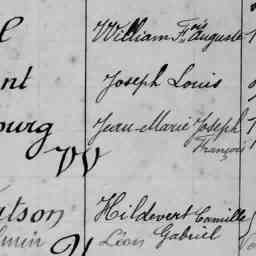 William F.ois Auguste
nt Joseph Louis
ourg Jean-Marie Joseph
François
W
tson Hildevert Camille
Léon Gabriel